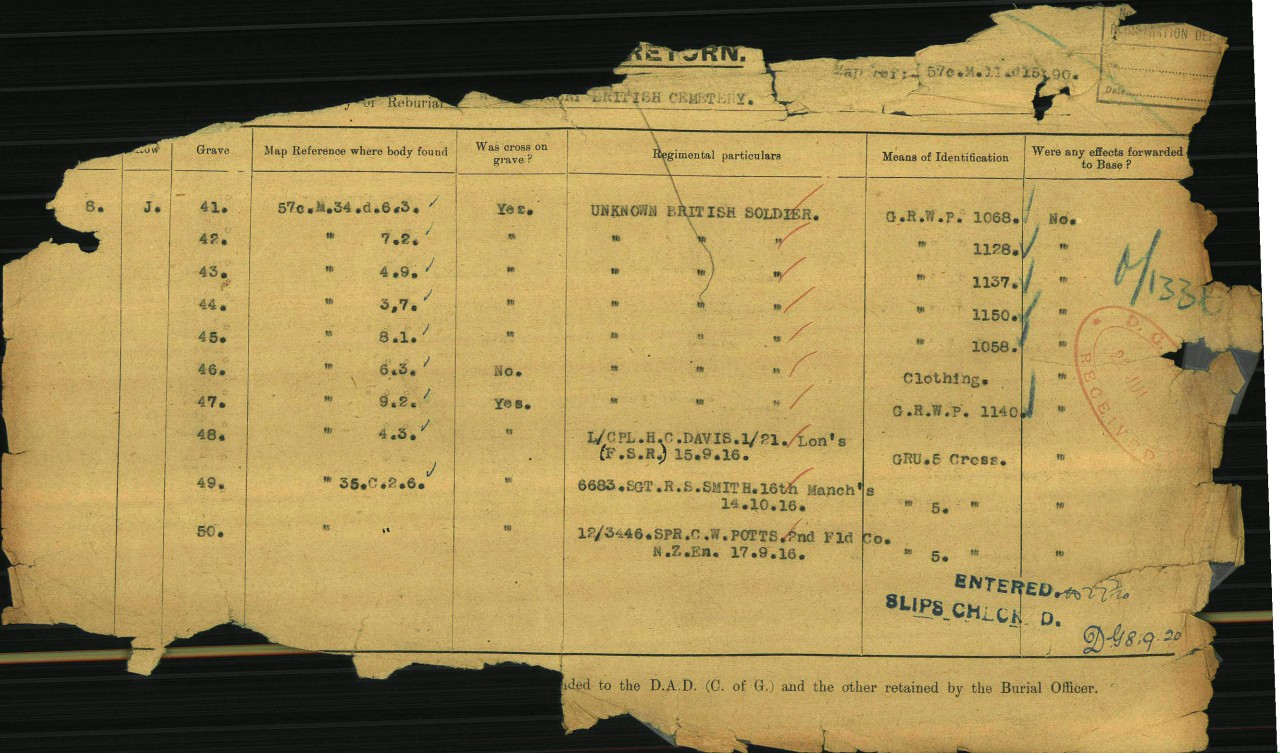 RETURN.
REGISTRATION DEP
Map ref: 57c.M.11.d15.90.
Date
of Reburial BRITISH CEMETERY.
Row Grave Map Reference where body found Was cross on grave? Regimental particulars Means of Identification Were any effects forwarded to Base?
8. J. 41. 57c.M.34.d.6.3. Yes. UNKNOWN BRITISH SOLDIER. G.R.W.P. 1068. No.
42. " 7.2. " " " " " 1128. "
43. " 4.9. " " " " " 1137. "
44. " 3,7. " " " " " 1150. "
45. " 8.1. " " " " " 1058. "
46. " 6.3. No. " " " Clothing. "
47. " 9.2. Yes. " " " G.R.W.P. 1140. "
48. " 4.3. " L/CPL.H.C.DAVIS.1/21. Lon's
(F.S.R.) 15.9.16. GRU.5 Cross. "
49. " 35.C.2.6. " 6683.SGT.R.S.SMITH.16th Manch's
14.10.16. " 5. " "
50. " " " 12/3446.SPR.C.W.POTTS.2nd Fld Co.
N.Z.En. 17.9.16. " 5. " "
D.G.
RECEIVED
ENTERED.
SLIPS CHECK D.
DG 8.9.20
ded to the D.A.D. (C. of G.) and the other retained by the Burial Officer.